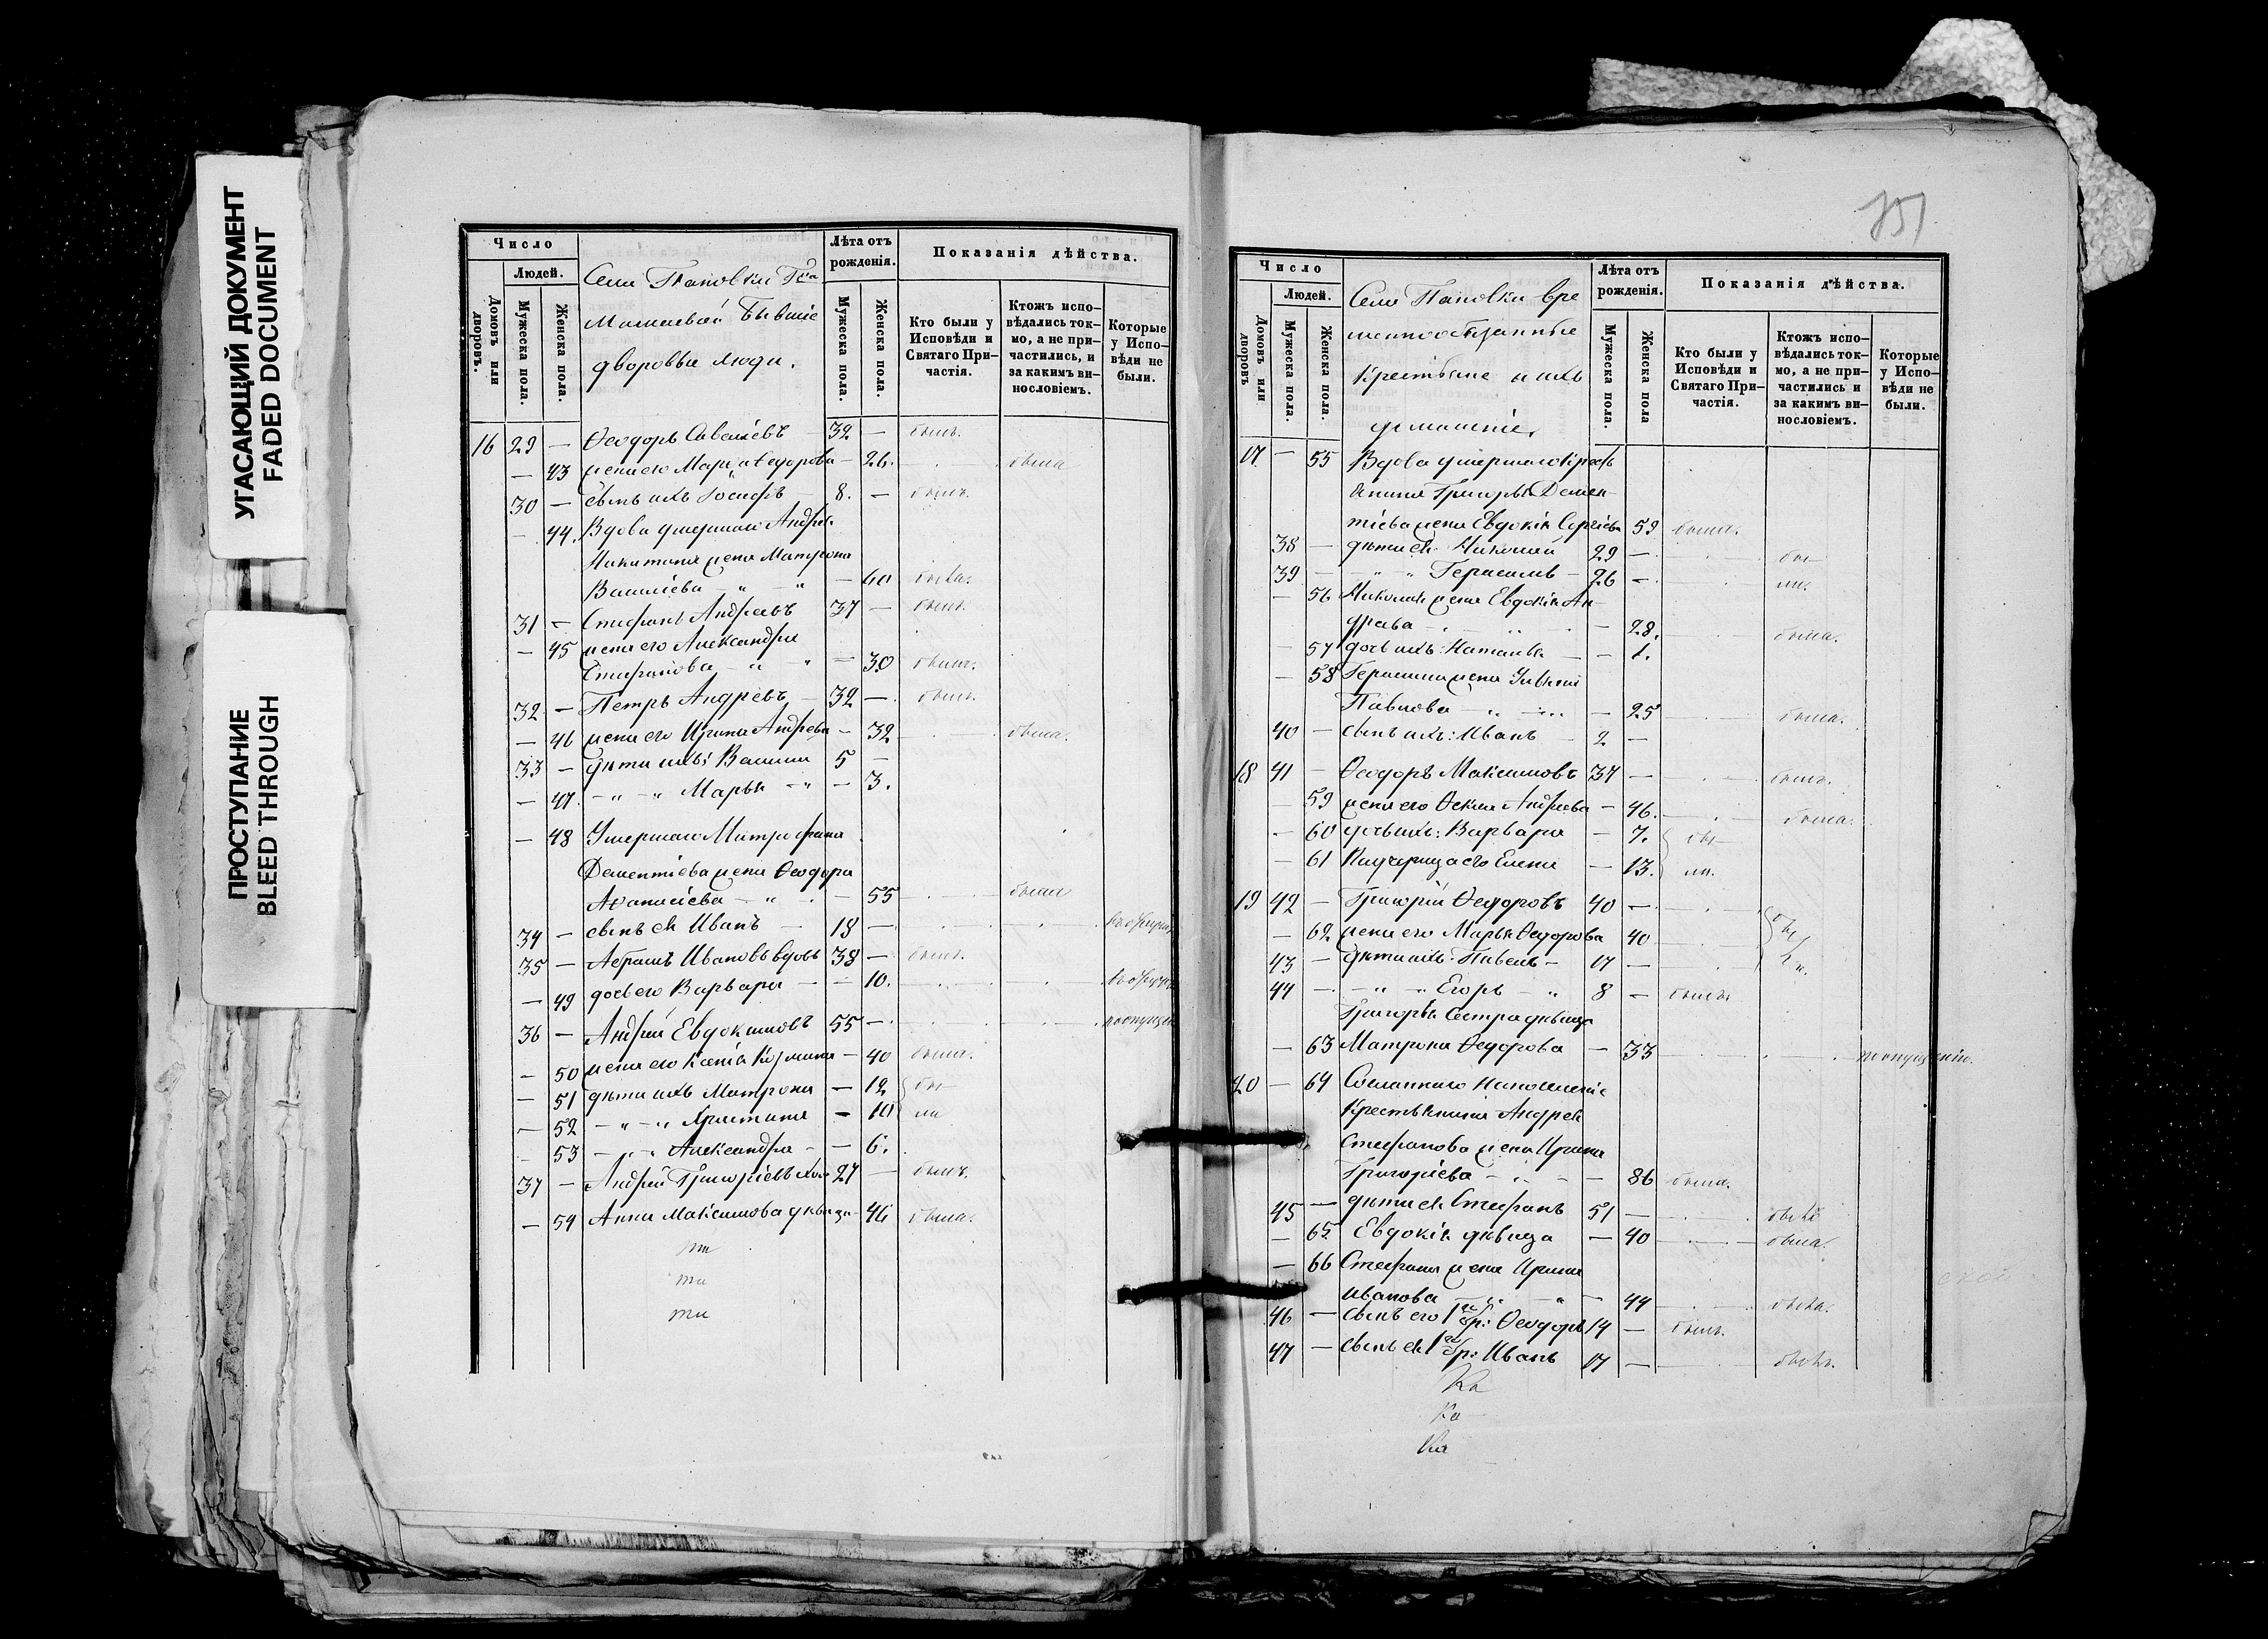 УГАСАЮЩИЙ ДОКУМЕНТ
FADED DOCUMENT
ПРОСТУПАНИЕ
BLEED THROUGH
Число
Людей.
Домовъ или дворовъ.
Мужеска пола.
Женска пола.
Села Пановки Гжа
бывшіе
дворовые люди.
Лѣта отъ рожденія.
Мужеска пола.
Женска пола.
Показанія дѣйства.
Кто были у Исповѣди и Святаго При-частія.
Ктожъ испо-вѣдались ток-мо, а не при-частились, и за какимъ ви-нословіемъ.
Которые у Испо-вѣди не были.
16 29 — Ѳеодоръ Савельевъ — 32 — былъ.
— 43 жена его Марія Ѳедорова — 26. была
30 — сынъ ихъ Іосифъ — 8. — былъ.
— 44. Вдова умершаго Андрея
Никитина жена Матрона
Васильева — " — " — 60 была.
31 — Стефанъ Андреевъ 37 — былъ.
— 45 жена его Александра
Стефанова — " — " — 30 была.
32 — Петръ Андреевъ — 32 — былъ.
— 46 жена его Ирина Андреева — 32 была.
33 — дѣти ихъ: Василій 5 —
— 47. — " — " Марья — " — 3.
— 48 Умершаго Митрофана
Дементіева жена Ѳеодора
Аѳанасіева — " — 55 была
34 — сынъ ея Иванъ — 18 —
35 — Абрамъ Ивановъ вдовъ 38 — былъ.
— 49 дочь его Варвара — — 10.
36 — Андрей Евдокимовъ 55 —
— 50 жена его Ксенія Козмина — 40 была.
— 51 дѣти ихъ Матрона — 12 бы-
— 52 — " — " Христина — 10 ли
— 53 — " — " Александра — — 6.
37 — Андрей Григорьевъ 27 — былъ.
— 54 Анна Максимова дѣвица — 46 была.
151
Число
Людей.
Домовъ или дворовъ
Мужеска пола.
Женска пола.
Села Пановки вре
меннообязанные
крестьяне и ихъ
домашніе.
Лѣта отъ рожденія.
Мужеска пола.
Женска пола
Показанія дѣйства.
Кто были у Исповѣди и Святаго При-частія.
Ктожъ испо-вѣдались ток-мо, а не при-частились и за какимъ ви-нословіемъ.
Которые у Испо-вѣди не были.
17 — 55 Вдова умершаго Кресть
янина Григорья Демен-
тіева жена Евдокія Сергіева 59 была.
38 — дѣти ея Николай 29 — бы-
39 — " " Герасимъ — 26 — ли.
— 56 Николая жена Евдокія Ан-
дреева — " — 28. была.
— 57 дочь ихъ: Наталья — — 1.
— 58 Герасима жена Ульянія
Павлова — " — — 25 была.
40 — сынъ ихъ: Иванъ — 2 —
18 41 — Ѳеодоръ Максимовъ 37 — былъ.
— 59 жена его Ѳекла Андреева — 46. была.
— 60 дочь ихъ: Варвара — 7. бы-
— 61 Падчерица его Елена — 13. ли.
19 42 — Григорій Ѳедоровъ 40 —
— 62 жена его Марья Ѳедорова 40
43 — дѣти ихъ: Павелъ — 17 —
44 — " — " Егоръ — " 8 — былъ.
Григорья Сестра дѣвица
— 63 Матрона Ѳедорова — 33 по опущенію.
20 — 64 Сосланнаго на поселеніе
Крестьянина Андрея
Стефанова жена Ирина
Григорьева — " — — 86 была.
45 — дѣти ея Стефанъ 51 — былъ
— 65 Евдокія дѣвица — 40 — была.
— 66 Стефана жена Ирина
Иванова — " — " — 44 была.
46 — сынъ его 1го бр: Ѳеодоръ 14 — былъ.
47 — сынъ ея 1го бр: Иванъ 17 — былъ.
Ка
Ка
Ка